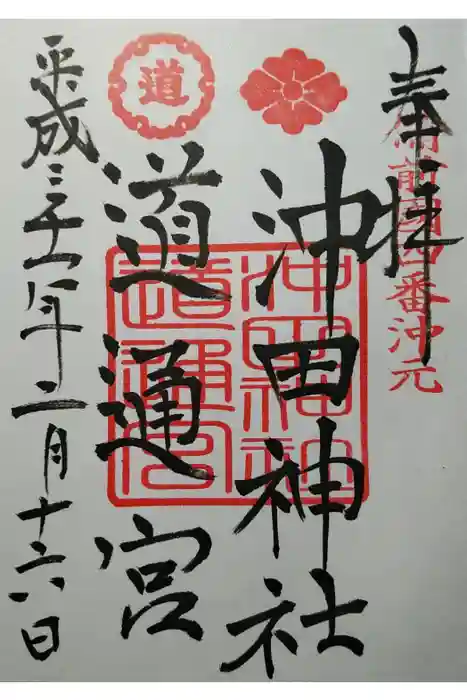 奉拝
備前國四番沖元
沖田神社
沖田神社
道
道通宮
道通宮
平成三十一年二月十六日